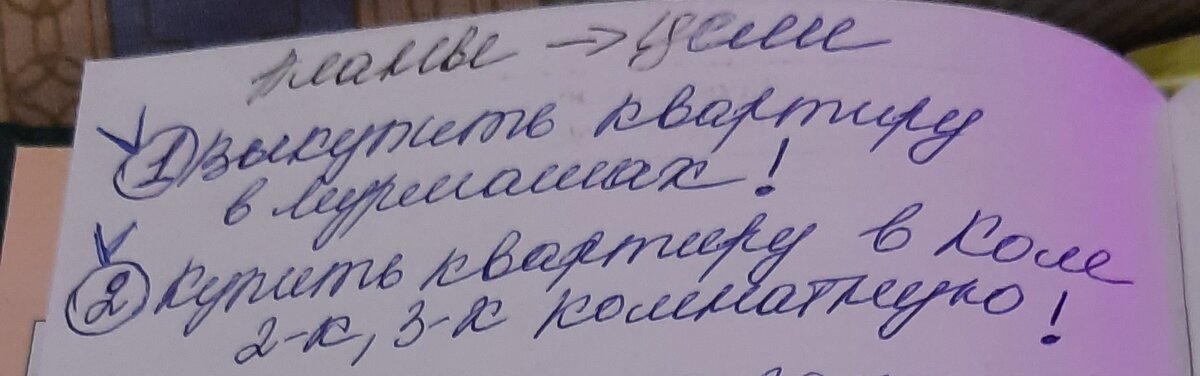 планы → цели
✓ ① Выкупить квартиру
в Мурмашах!
✓ ② Купить квартиру в Коле
2-к, 3-х комнатную!